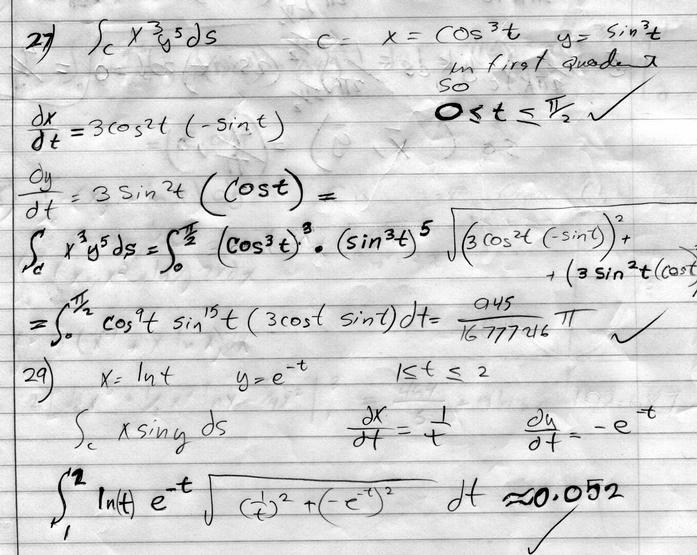 27) ∫_C x³y⁵ds    C=  x = cos³t  y= sin³t
in first quadrant
so
0 ≤ t ≤ π/2 ✓
dx/dt = 3cos²t (-sin t)
dy/dt = 3 sin²t (cos t) =
∫_C x³y⁵ds = ∫_0^{π/2} (cos³t)³ · (sin³t)⁵ √(3 cos²t (-sin t))² +
+ (3 sin²t (cost
= ∫_0^{π/2} cos⁹t sin¹⁵t (3cost sint) dt = 945/16777216 π ✓
29) x = ln t    y = e^{-t}    1 ≤ t ≤ 2
∫_C x sin y ds    dx/dt = 1/t    dy/dt = -e^{-t}
∫_1^2 ln(t) e^{-t} √((1/t)² + (-e^{-t})²) dt ≈ 0.052 ✓